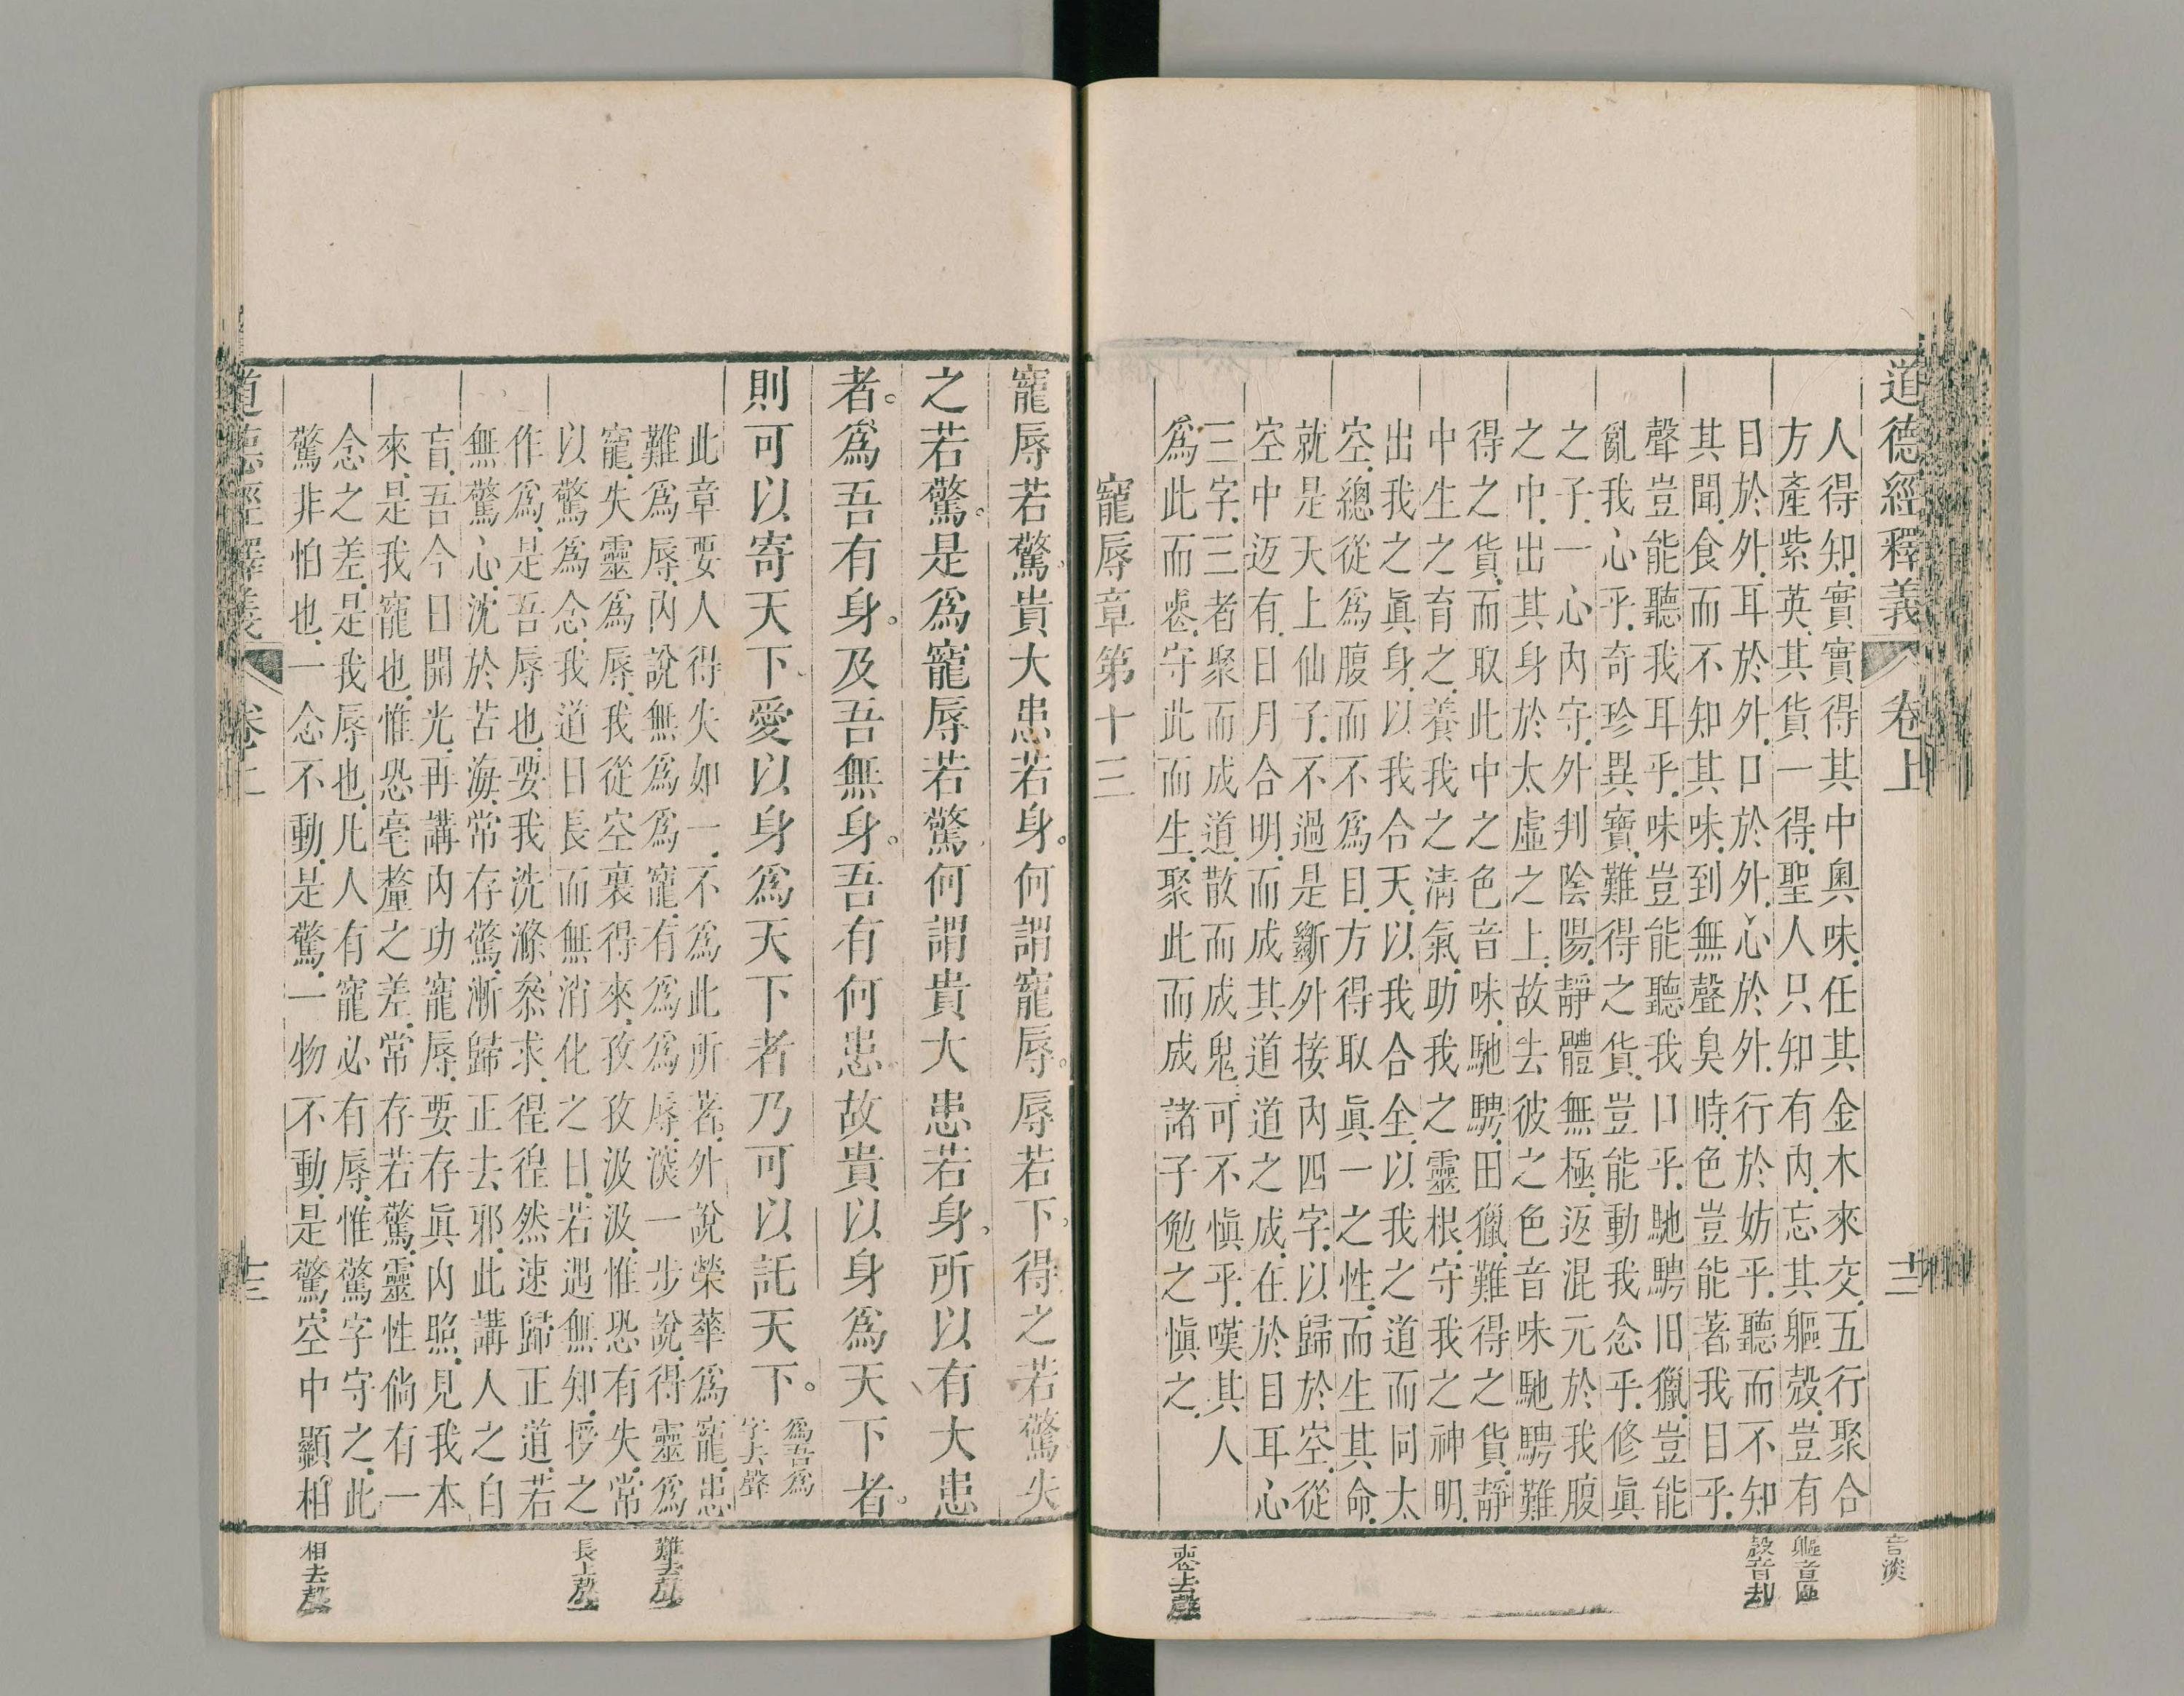 道德經釋義 卷上 十二
人得知實實得其中奧味任其金木來交五行聚合
方產紫英其貨一得聖人只知有內忘其軀殼豈有
目於外耳於外口於外心於外行於妨乎聽而不知
其聞食而不知其味到無聲臭時色豈能著我目乎
聲豈能聽我耳乎味豈能聽我口乎馳騁田獵豈能
亂我心乎奇珍異寶難得之貨豈能動我念乎修眞
之子一心內守外判陰陽靜體無極返混元於我腹
之中出其身於太虛之上故去彼之色音味馳騁難
得之貨而取此中之色音味馳騁田獵難得之貨靜
中生之育之養我之清氣助我之靈根守我之神明
出我之眞身以我合天以我合全以我之道而同太
空總從爲腹而不爲目方得取眞一之性而生其命
就是天上仙子不過是斷外接內四字以歸於空從
空中迈有日月合明而成其道道之成在於目耳心
三字三者聚而成道散而成鬼可不慎乎嘆其人
爲此而喪守此而生聚此而成諸子勉之慎之
寵辱章第十三
音淡
軀音區
殼音却
喪去聲
寵辱若驚貴大患若身。何謂寵辱。辱若下。得之若驚失
之若驚。是爲寵辱若驚何謂貴大患若身。所以有大患
者。爲吾有身。及吾無身。吾有何患。故貴以身爲天下者。
則可以寄天下愛以身爲天下者乃可以託天下。爲吾爲字去聲
此章要人得失如一不爲此所著外說榮華爲寵患
難爲辱內說無爲爲寵有爲爲辱淡一步說得靈爲
寵失靈爲辱我從空裏得來孜孜汲汲惟恐有失常
以驚爲念我道日長而無消化之日若遇無知授之
作爲是吾辱也要我洗滌叅求徎徎然速歸正道若
無驚心沈於苦海常存驚漸歸正去邪此講人之自
盲吾今日開光再講內功寵辱要存眞內照見我本
來是我寵也惟恐亳釐之差常存若驚靈性倘有一
念之差是我辱也凡人有寵必有辱惟驚字守之此
驚非怕也一念不動是驚一物不動是驚空中顯相
道德經釋義 卷上 十三
難去聲
長上聲
相去聲